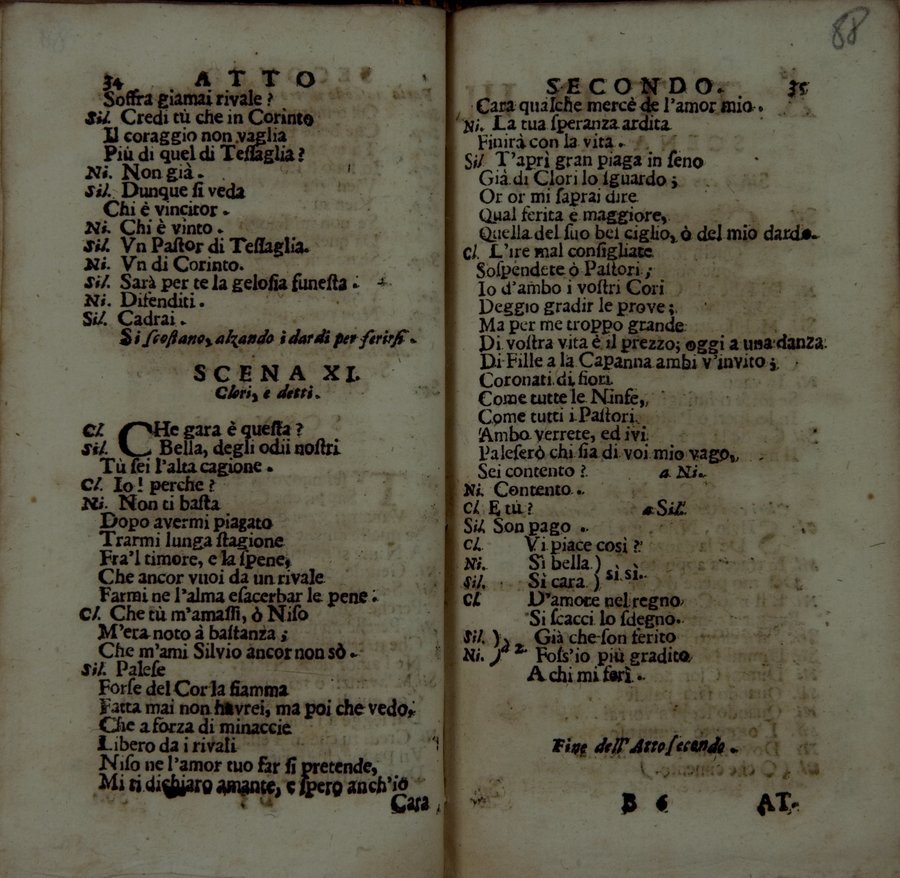 34 ATTO
Soffra giamai rivale?
Sil. Credi tù che in Corinto
Il coraggio non vaglia
Più di quel di Tessaglia?
Ni. Non già.
Sil. Dunque si veda
Chi è vincitor.
Ni. Chi è vinto.
Sil. Vn Pastor di Tessaglia.
Ni. Vn di Corinto.
Sil. Sarà per te la gelosia funesta.
Ni. Difenditi.
Sil. Cadrai.
Si scostano, alzando i dardi per ferirsi.
SCENA XI.
Clori, e detti.
Cl. CHe gara è questa?
Sil. Bella, degli odii nostri
Tù sei l'alta cagione.
Cl. Io! perche?
Ni. Non ti basta
Dopo avermi piagato
Trarmi lunga stagione
Fra'l timore, e la spene,
Che ancor vuoi da un rivale
Farmi ne l'alma esacerbar le pene.
Cl. Che tù m'amassi, ò Niso
M'era noto à bastanza;
Che m'ami Silvio ancor non sò.
Sil. Palese
Forse del Cor la fiamma
Fatta mai non havrei, ma poi che vedo,
Che a forza di minaccie
Libero da i rivali
Niso ne l'amor tuo far si pretende,
Mi ti dichiaro amante, e spero anch'io
Cara
88
SECONDO. 35
Cara qualche mercè de l'amor mio.
Ni. La tua speranza ardita
Finirà con la vita.
Sil. T'aprì gran piaga in seno
Già di Clori lo sguardo;
Or or mi saprai dire
Qual ferita e maggiore,
Quella del suo bel ciglio, ò del mio dardo.
Cl. L'ire mal consigliate
Sospendete ò Pastori;
Io d'ambo i vostri Cori
Deggio gradir le prove;
Ma per me troppo grande
Di vostra vita è il prezzo; oggi a una danza
Di Fille a la Capanna ambi v'invito;
Coronati di fiori
Come tutte le Ninfe,
Come tutti i Pastori
Ambo verrete, ed ivi
Paleserò chi sia di voi mio vago,
Sei contento? a Ni.
Ni. Contento.
Cl. E tù? a Sil.
Sil. Son pago.
Cl. Vi piace così?
Ni. Sì bella )
Sil. Sì cara ) si si.
Cl. D'amore nel regno
Si scacci lo sdegno.
Sil. ) a 2. Già che son ferito
Ni. ) Foss'io più gradito
A chi mi ferì.
Fine dell'Atto secondo.
B 6 AT-